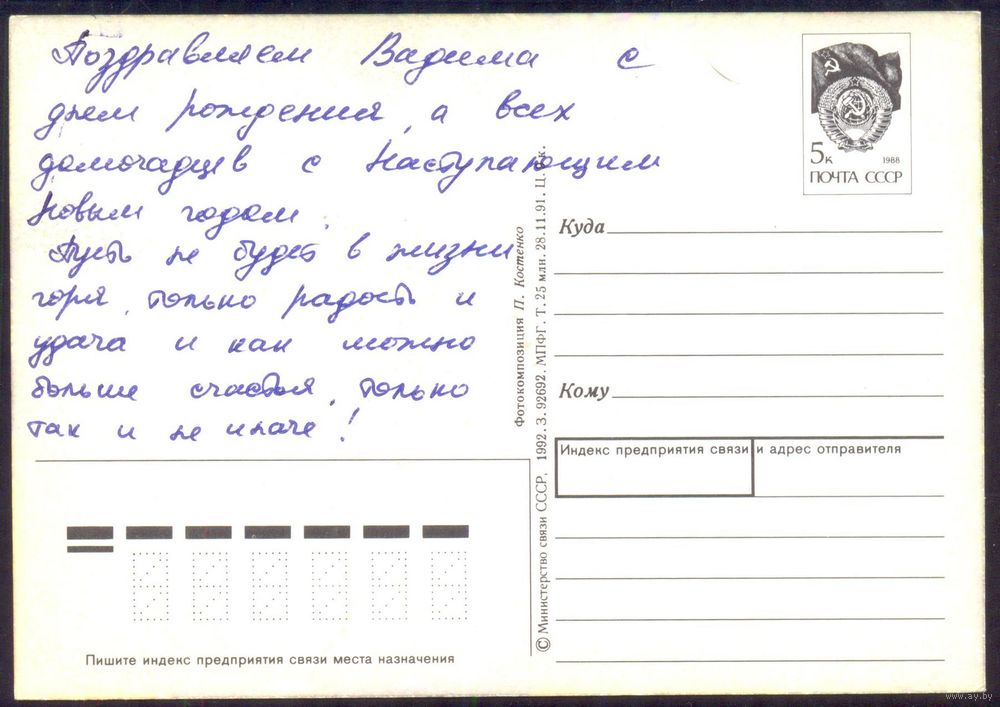 Поздравляем Вадима с
днем рождения, а всех
домочадцев с Наступающим
Новым годом.
Пусть не будет в жизни
горя, только радость и
удача и как можно
больше счастья, только
так и не иначе!
5к 1988
ПОЧТА СССР
Куда
Кому
Индекс предприятия связи и адрес отправителя
Фотокомпозиция П. Костенко
© Министерство связи СССР, 1992. З. 92692. МПФГ. Т. 25 млн. 28.11.91. Ц. 15 к.
Пишите индекс предприятия связи места назначения
www.ay.by